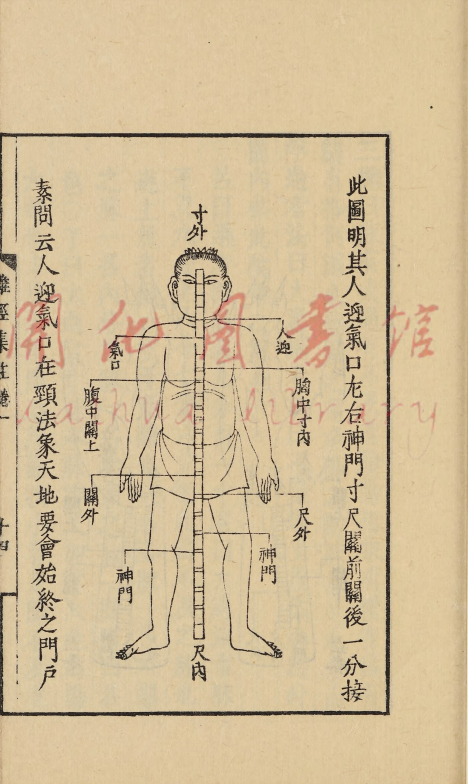 此圖明其人迎氣口左右神門寸尺關前關後一分接
寸外
人迎
氣口
胸中寸內
腹中關上
關外
尺外
神門
神門
尺內
素問云人迎氣口在頸法象天地要會始終之門戶
難經集註卷一
十四
開化圖書館
Kaihua Library